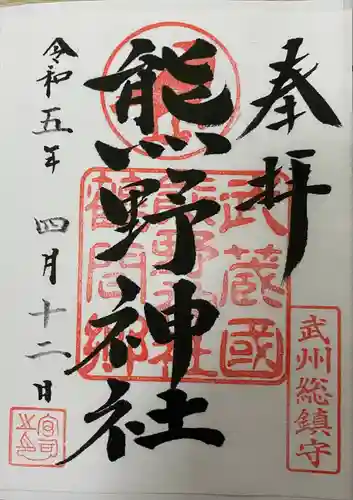 奉拝
武州総鎮守
熊野神社
武蔵國
熊野社
鶴間郷
令和五年 四月十二日